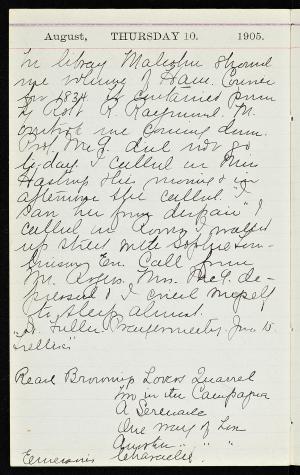 August, THURSDAY 10. 1905.
In library Malcolm showed
me volume of Ham. Corner
for 1834. It contained poem
by Robt R. Raymond. M.
me coming down.
Prof. McG. did not go
to day. I called on Mrs
Hastings this morning & in
afternoon she called. "I
ran her from despair" I
called on & walked
up street with Sophie
Ev. Call from
Mr. Rogers. Mrs. McG. de-
pressed & I cried myself
to sleep almost.
Fuller. Prayermeeting. Jno 15
Read Browning Lovers Quarrel
in the Campagna
A Serenade
One Way of Love
Another " " "
Emersons Character